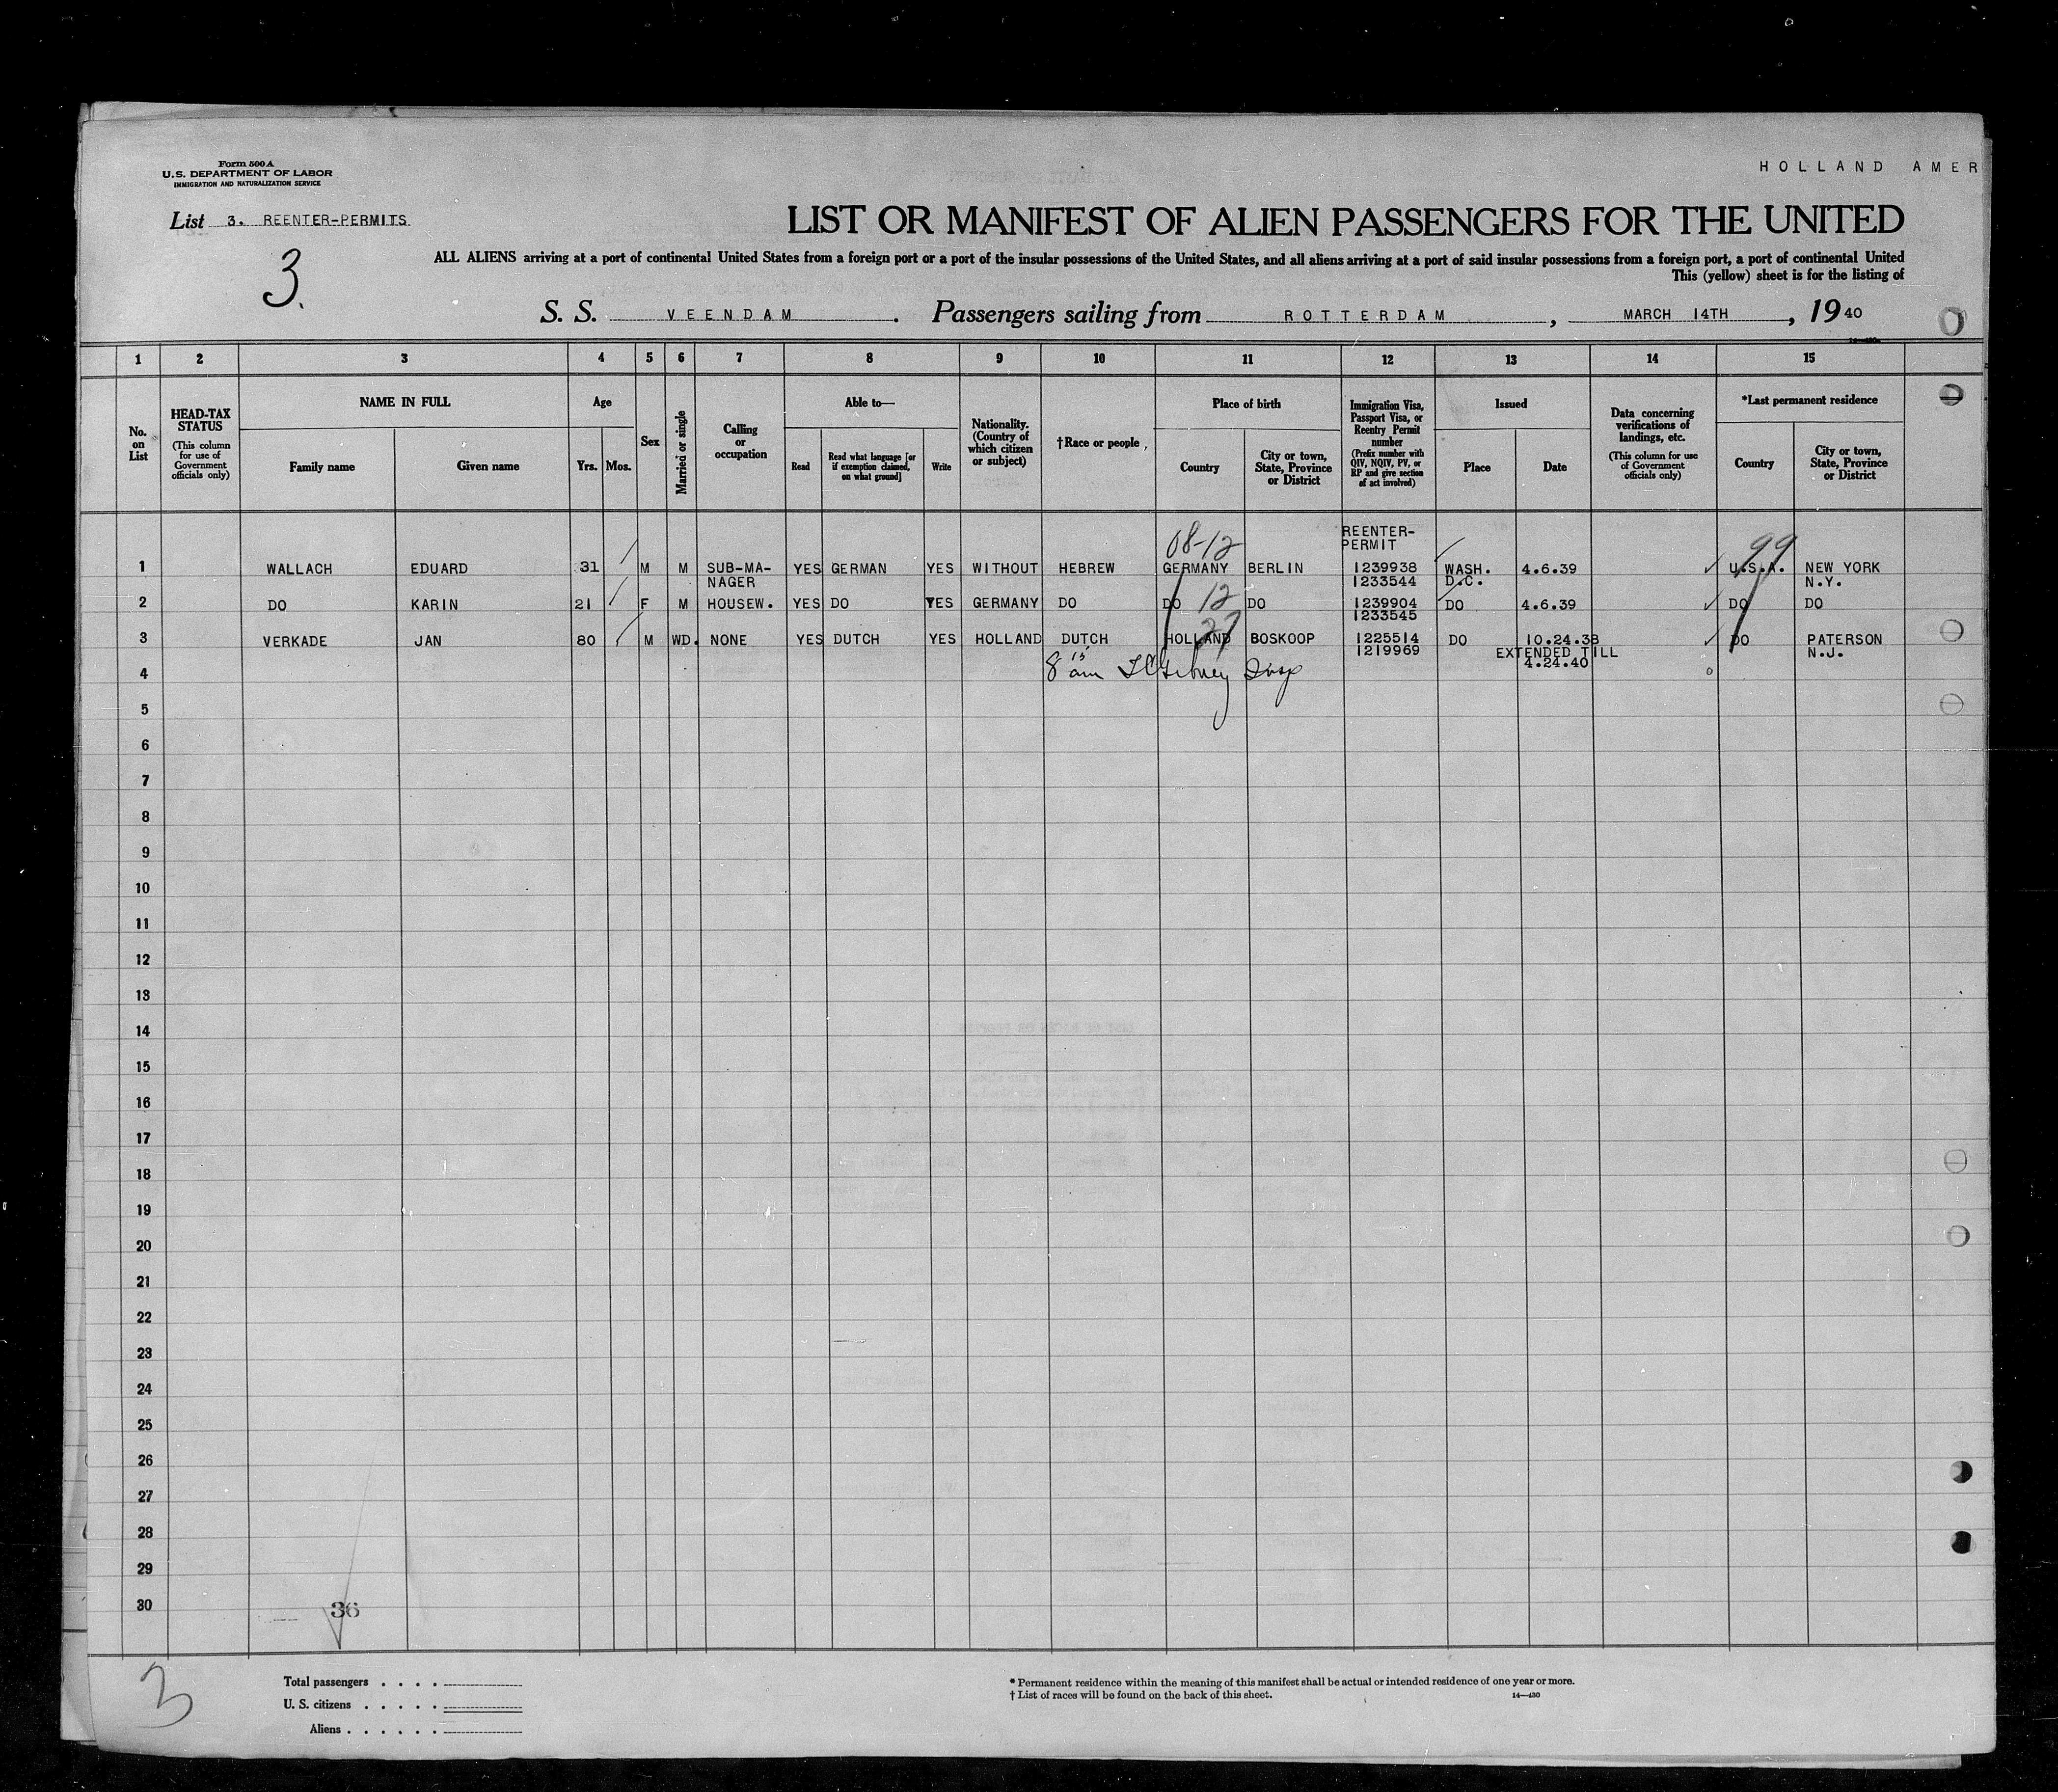 Form 500 A
U.S. DEPARTMENT OF LABOR
IMMIGRATION AND NATURALIZATION SERVICE
HOLLAND AMER
List 3. REENTER-PERMITS
3.
LIST OR MANIFEST OF ALIEN PASSENGERS FOR THE UNITED
ALL ALIENS arriving at a port of continental United States from a foreign port or a port of the insular possessions of the United States, and all aliens arriving at a port of said insular possessions from a foreign port, a port of continental United
This (yellow) sheet is for the listing of
S. S. VEENDAM. Passengers sailing from ROTTERDAM, MARCH 14TH, 1940
1 2 3 4 5 6 7 8 9 10 11 12 13 14 15
No. on List
HEAD-TAX STATUS
(This column for use of Government officials only)
NAME IN FULL
Family name
Given name
Age
Yrs.
Mos.
Sex
Married or single
Calling or occupation
Able to—
Read
Read what language [or if exemption claimed, on what ground]
Write
Nationality. (Country of which citizen or subject)
†Race or people
Place of birth
Country
City or town, State, Province or District
Immigration Visa, Passport Visa, or Reentry Permit number
(Prefix number with QIV, NQIV, PV, or RP and give section of act involved)
Issued
Place
Date
Data concerning verifications of landings, etc.
(This column for use of Government officials only)
*Last permanent residence
Country
City or town, State, Province or District
08-12
REENTER-
PERMIT
99
1 WALLACH EDUARD 31 M M SUB-MA- YES GERMAN YES WITHOUT HEBREW GERMANY BERLIN 1239938 WASH. 4.6.39 U.S.A. NEW YORK
NAGER 1233544 D.C. N.Y.
12
2 DO KARIN 21 F M HOUSEW. YES DO YES GERMANY DO DO DO 1239904 DO 4.6.39 DO DO
1233545
27
3 VERKADE JAN 80 M WD. NONE YES DUTCH YES HOLLAND DUTCH HOLLAND BOSKOOP 1225514 DO 10.24.38 DO PATERSON
1219969 EXTENDED TILL N.J.
4.24.40
4 8 15 am Insp
5
6
7
8
9
10
11
12
13
14
15
16
17
18
19
20
21
22
23
24
25
26
27
28
29
30
36
3
Total passengers . . . .
U. S. citizens . . . . .
Aliens . . . . . .
* Permanent residence within the meaning of this manifest shall be actual or intended residence of one year or more.
† List of races will be found on the back of this sheet.
14—430